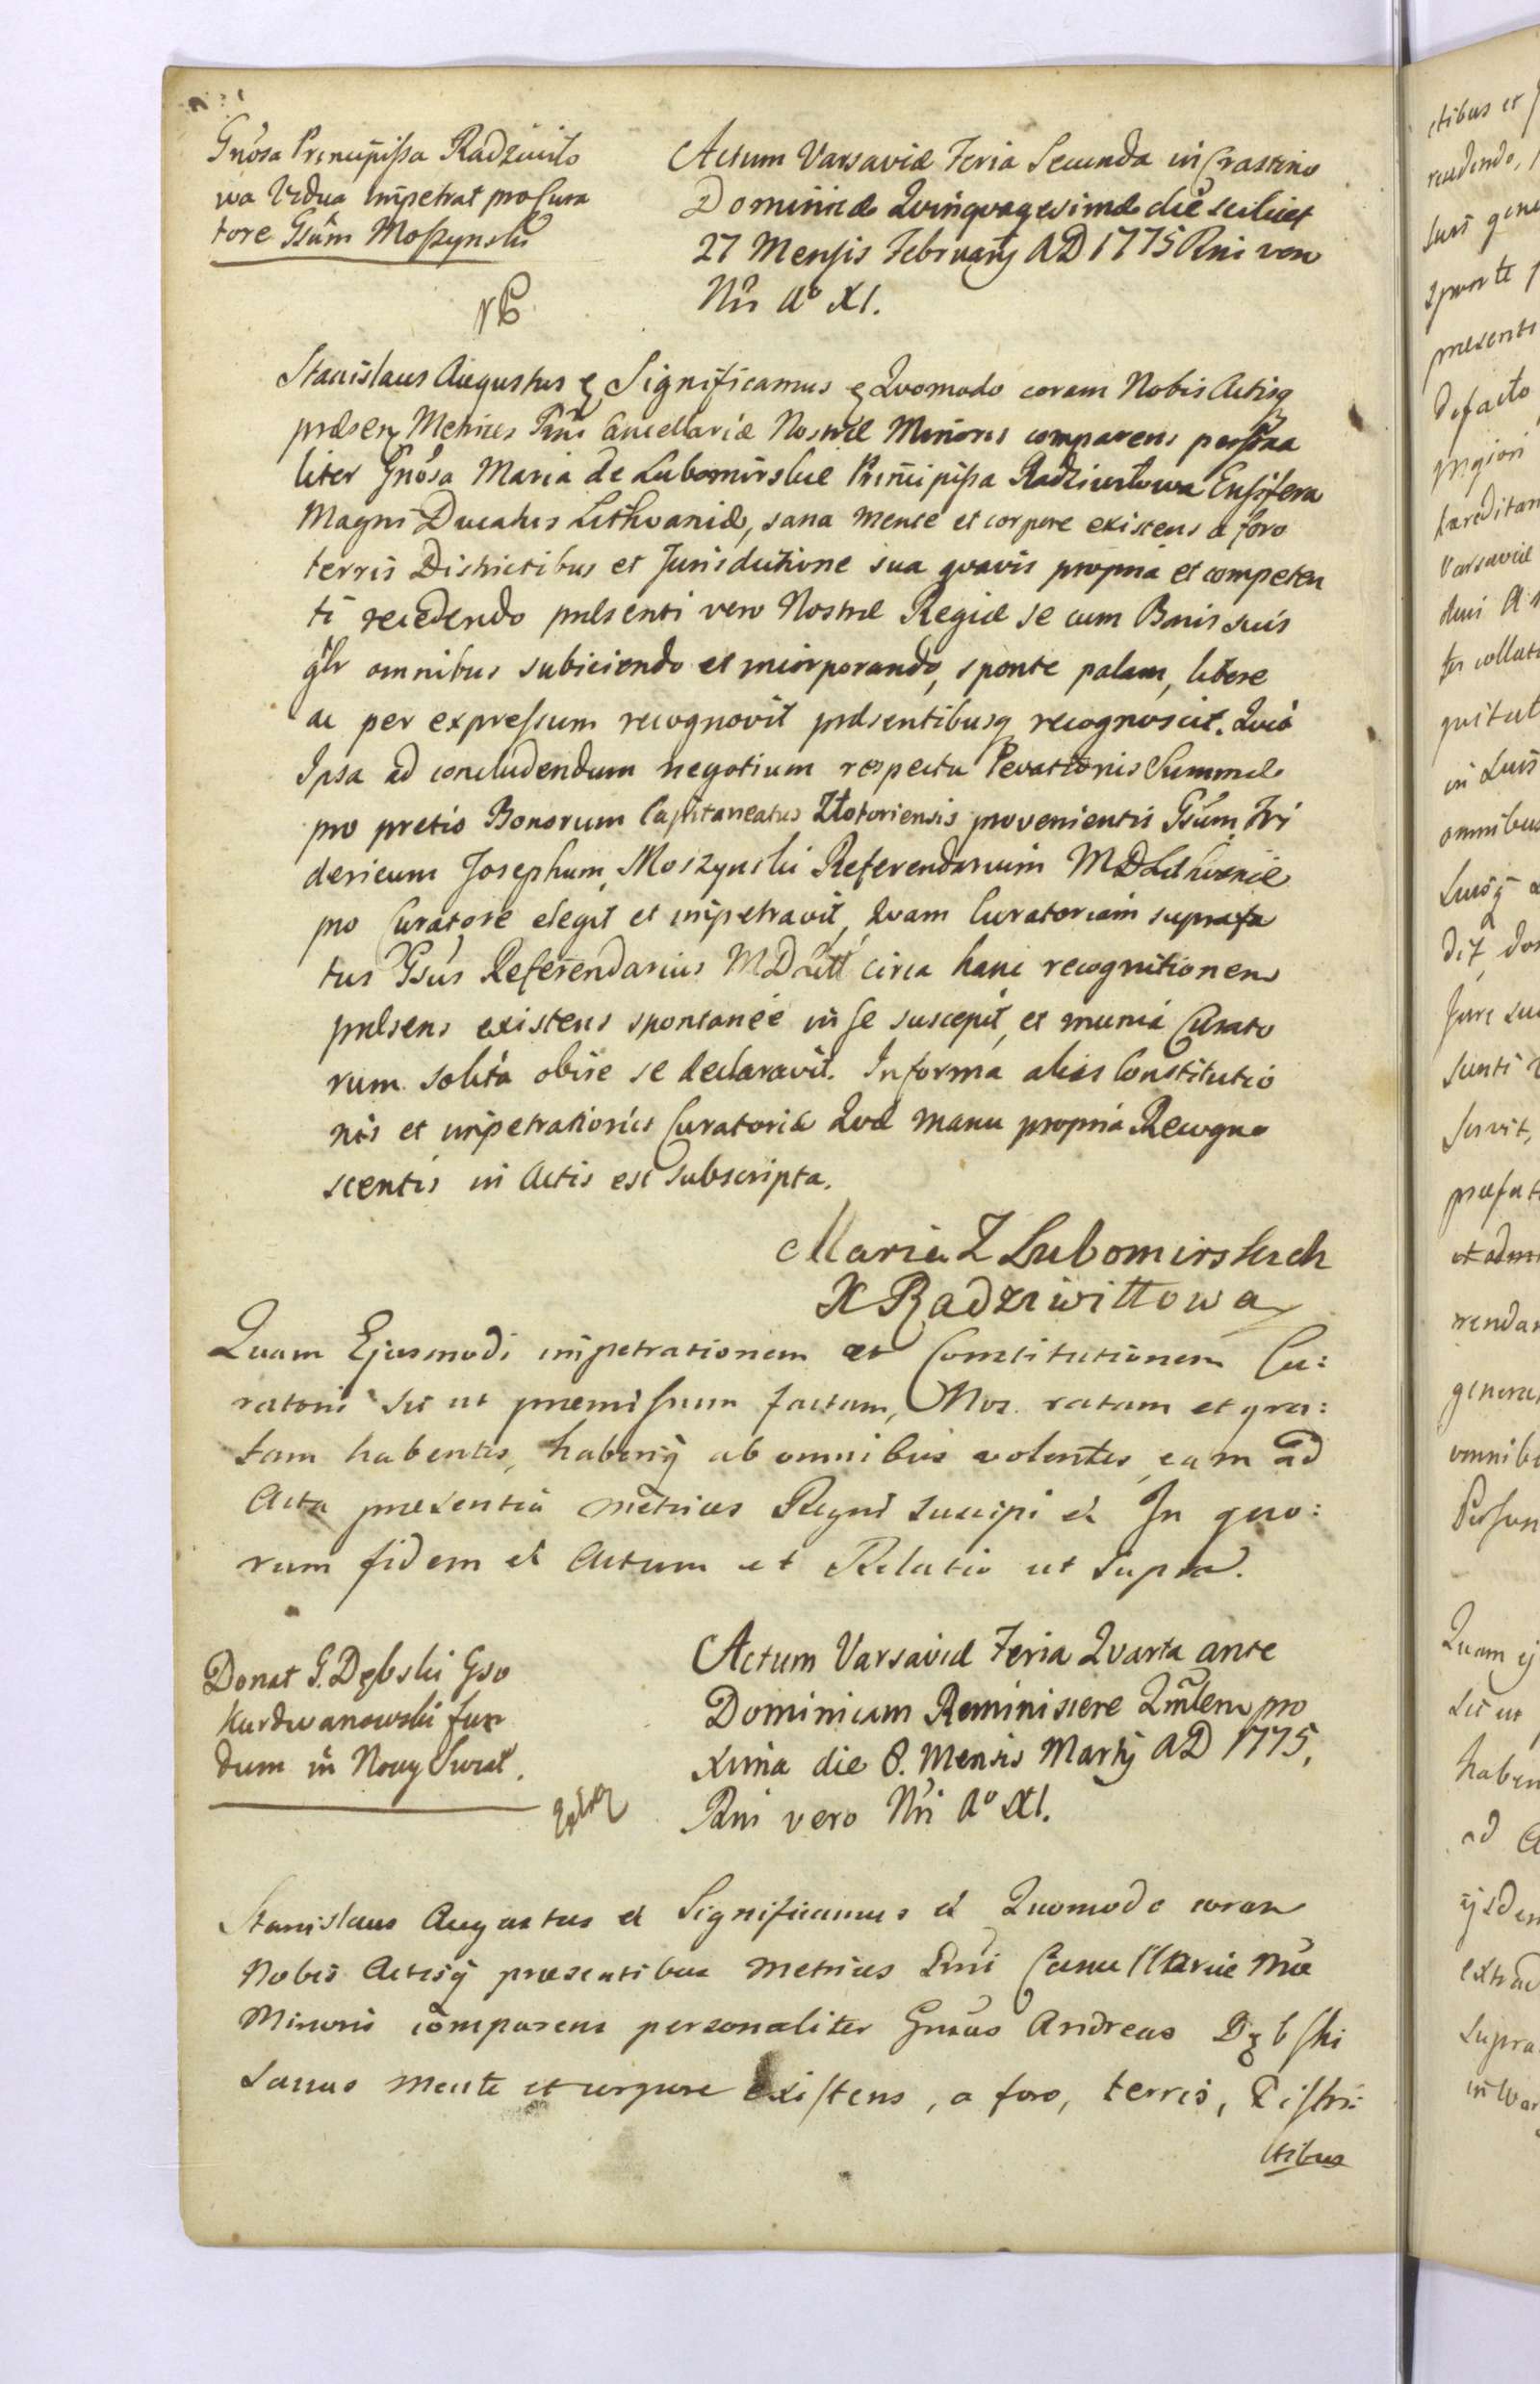 Gnosa Principissa Radziwiło
wa Vidua impetrat pro Cura
tore Gsum Moszynski
NB
Actum Varsaviæ Feria Secunda in Crastino
Dominicæ Quinquagesimæ die scilicet
27 Mensis Februarij AD 1775 Rni vero
Nri Aº XI.
Stanislaus Augustus & Significamus & Quomodo coram Nobis Actisq
præsen Metrices Rni Cancellariæ Nostræ Minoris comparens persona
liter Gnosa Maria de Lubomirskie Principissa Radziwiłowa Ensifera
Magni Ducatus Lithvaniæ, sana mente et corpore existens a foro
terris Districtibus et Jurisdictione sua qvavis propria et competen
ti recedendo præsenti vero Nostræ Regiæ se cum Bonis suis
glr omnibus subiciendo et incorporando, sponte palam, libere
ac per expressum recognovit præsentibusq recognoscit. Quia
Ipsa ad concludendum negotium respectu Levationis Summæ
pro pretio Bonorum Capitaneatus Złotoriensis provenientis Gsum Fri
dericum Josephum Moszynski Referendarium MDLithvaniæ
pro Curatore elegit et impetravit, Quam Curatoriam suprafa
tus Gsus Referendarius MDLitt circa hanc recognitionem
præsens existens spontanée in se suscepit, et munia Curato
rum solita obire se declaravit. In forma alias Constitutio
nis et impetrationis Curatoriæ Quæ manu propria Recogno
scentis in Actis est subscripta.
Maria Z Lubomirskich
X Radziwiłłowa
Quam Ejusmodi impetrationem et Constitutionem Cu:
ratoris sic ut præmissum factam, Nos ratam et gra:
tam habentes, haberiq ab omnibus volentes, eam ad
Acta præsentia Metrices Regni suscipi & In quo:
rum fidem & Actum et Relatio ut supra.
Donat G. Dębski Gso
Kurdwanowski fun
dum in Nowy Swiat.
Actum Varsaviæ Feria Quarta ante
Dominicam Reminiscere Qmlem pro
xima die 8. Mensis Martij AD 1775,
Rni vero Nri Aº XI.
Stanislaus Augustus & Significamus & Quomodo coram
Nobis Actisq præsentibus Metrices Rni Cancellariæ Nræ
Minoris comparens personaliter Gnsus Andreas Dębski
Sanus mente et corpore existens, a foro, terris, Distri:
ctibus